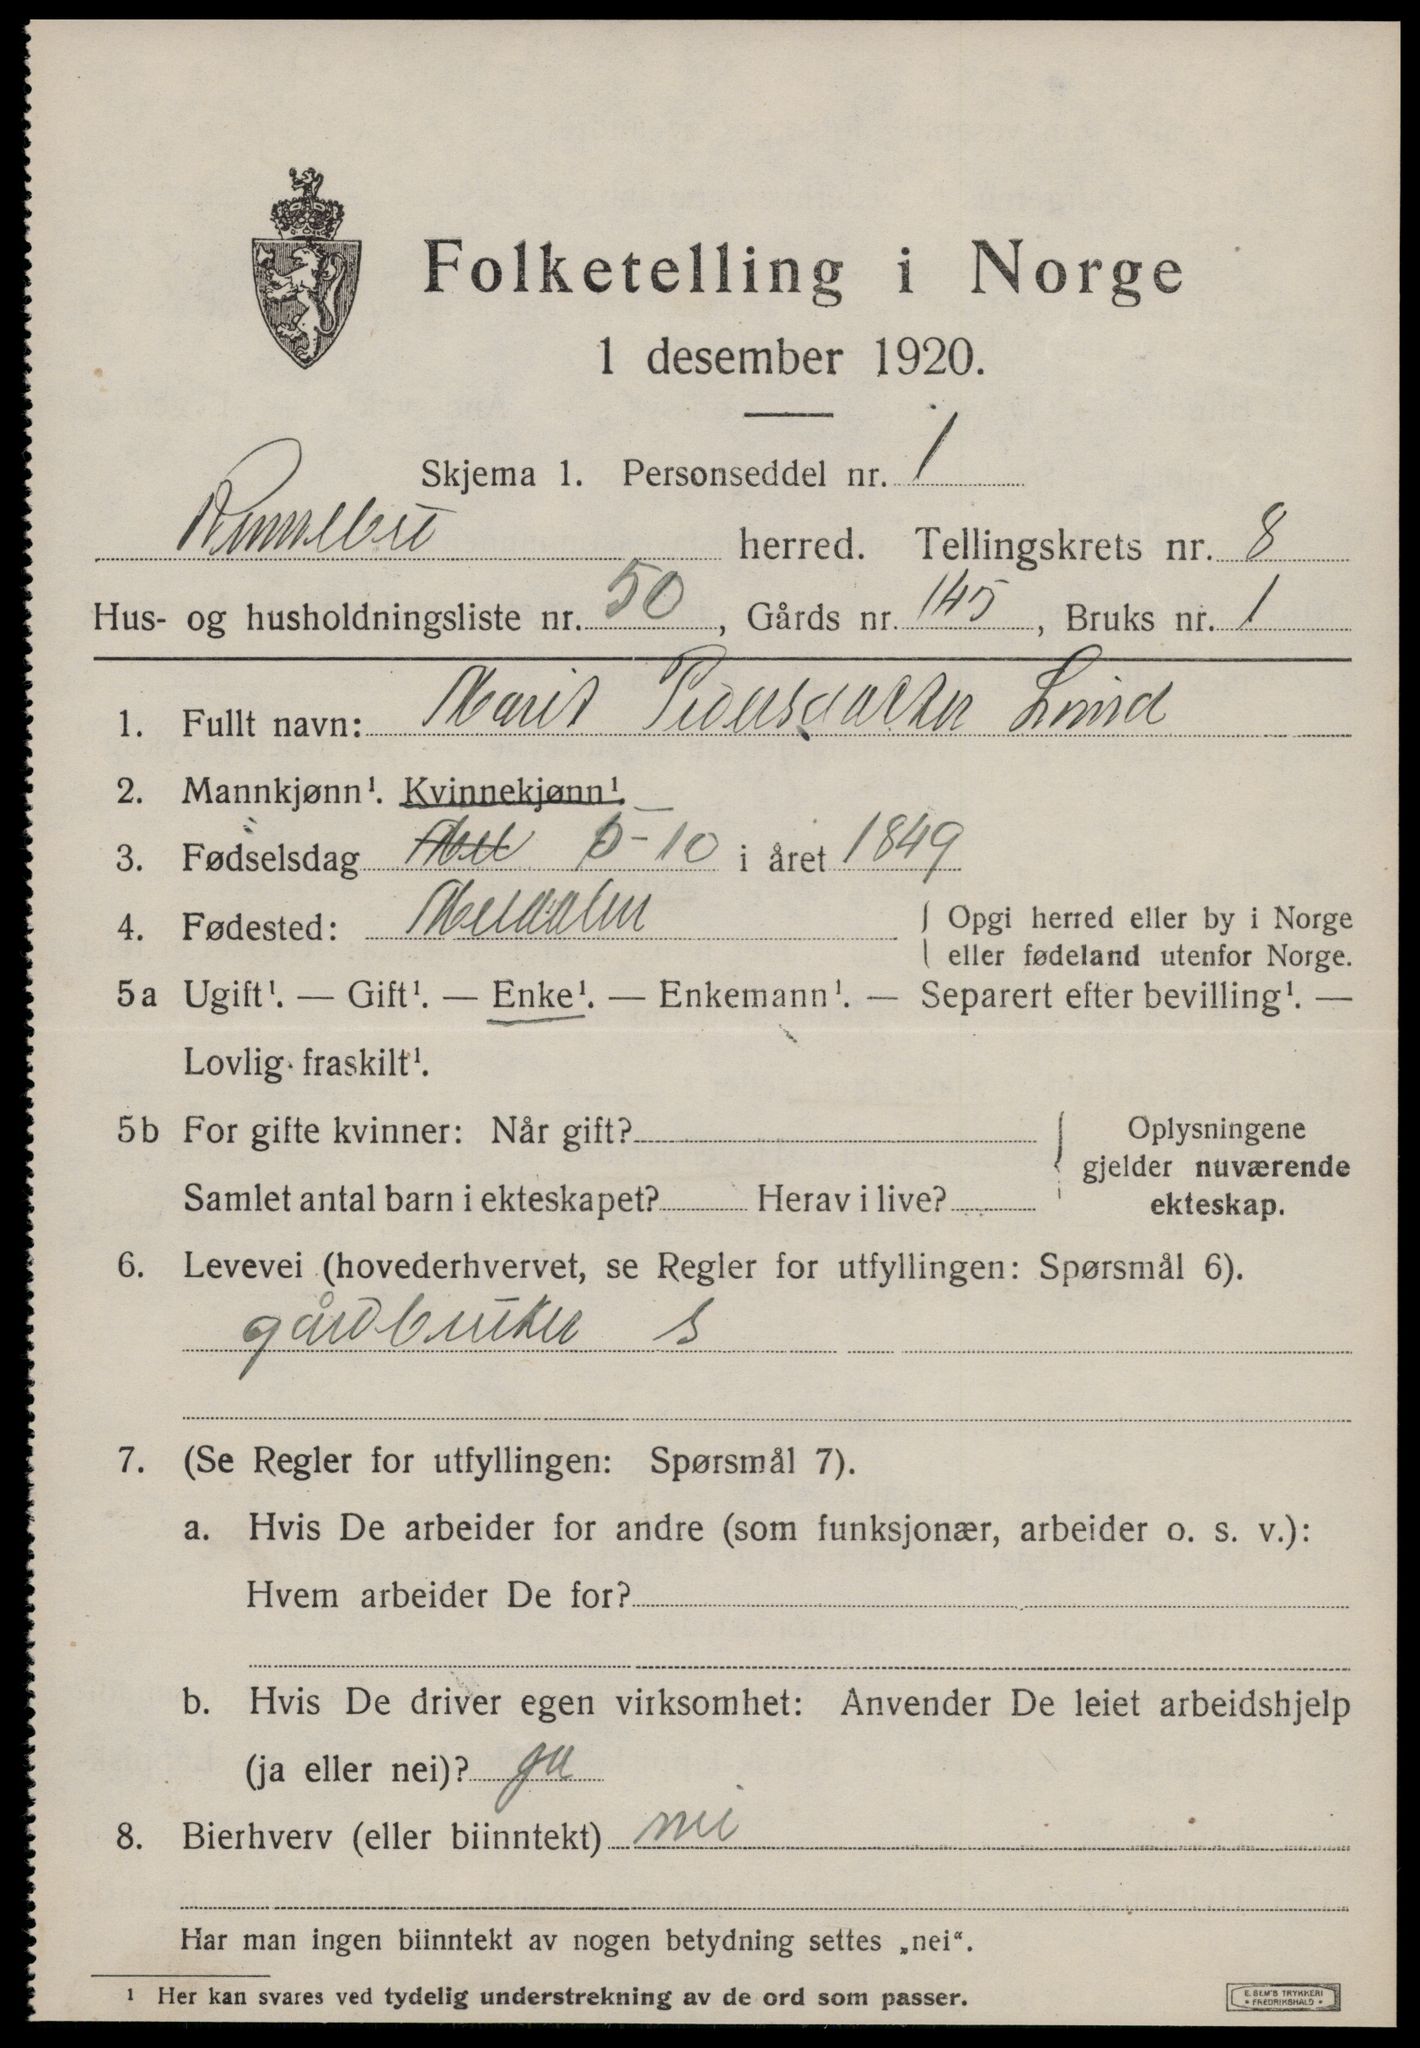 Folketelling i Norge
1 desember 1920.
Skjema 1. Personseddel nr. 1
Rennebu herred. Tellingskrets nr. 8
Hus- og husholdningsliste nr. 50, Gårds nr. 145, Bruks nr. 1
1. Fullt navn: Marit Pedersdatter
2. Mannkjønn¹. Kvinnekjønn¹.
3. Fødselsdag -10 i året 1849
4. Fødested: Meldalen { Opgi herred eller by i Norge
eller fødeland utenfor Norge.
5a Ugift¹. — Gift¹. — Enke¹. — Enkemann¹. — Separert efter bevilling¹. —
Lovlig fraskilt¹.
5b For gifte kvinner: Når gift? { Oplysningene
gjelder nuværende
Samlet antal barn i ekteskapet? Herav i live? ekteskap.
6. Levevei (hovederhvervet, se Regler for utfyllingen: Spørsmål 6).
gårdbruker S
7. (Se Regler for utfyllingen: Spørsmål 7).
a. Hvis De arbeider for andre (som funksjonær, arbeider o. s. v.):
Hvem arbeider De for?
b. Hvis De driver egen virksomhet: Anvender De leiet arbeidshjelp
(ja eller nei)? ja
8. Bierhverv (eller biinntekt) nei
Har man ingen biinntekt av nogen betydning settes „nei“.
¹ Her kan svares ved tydelig understrekning av de ord som passer.
E. SEM'S TRYKKERI
• FREDRIKSHALD •